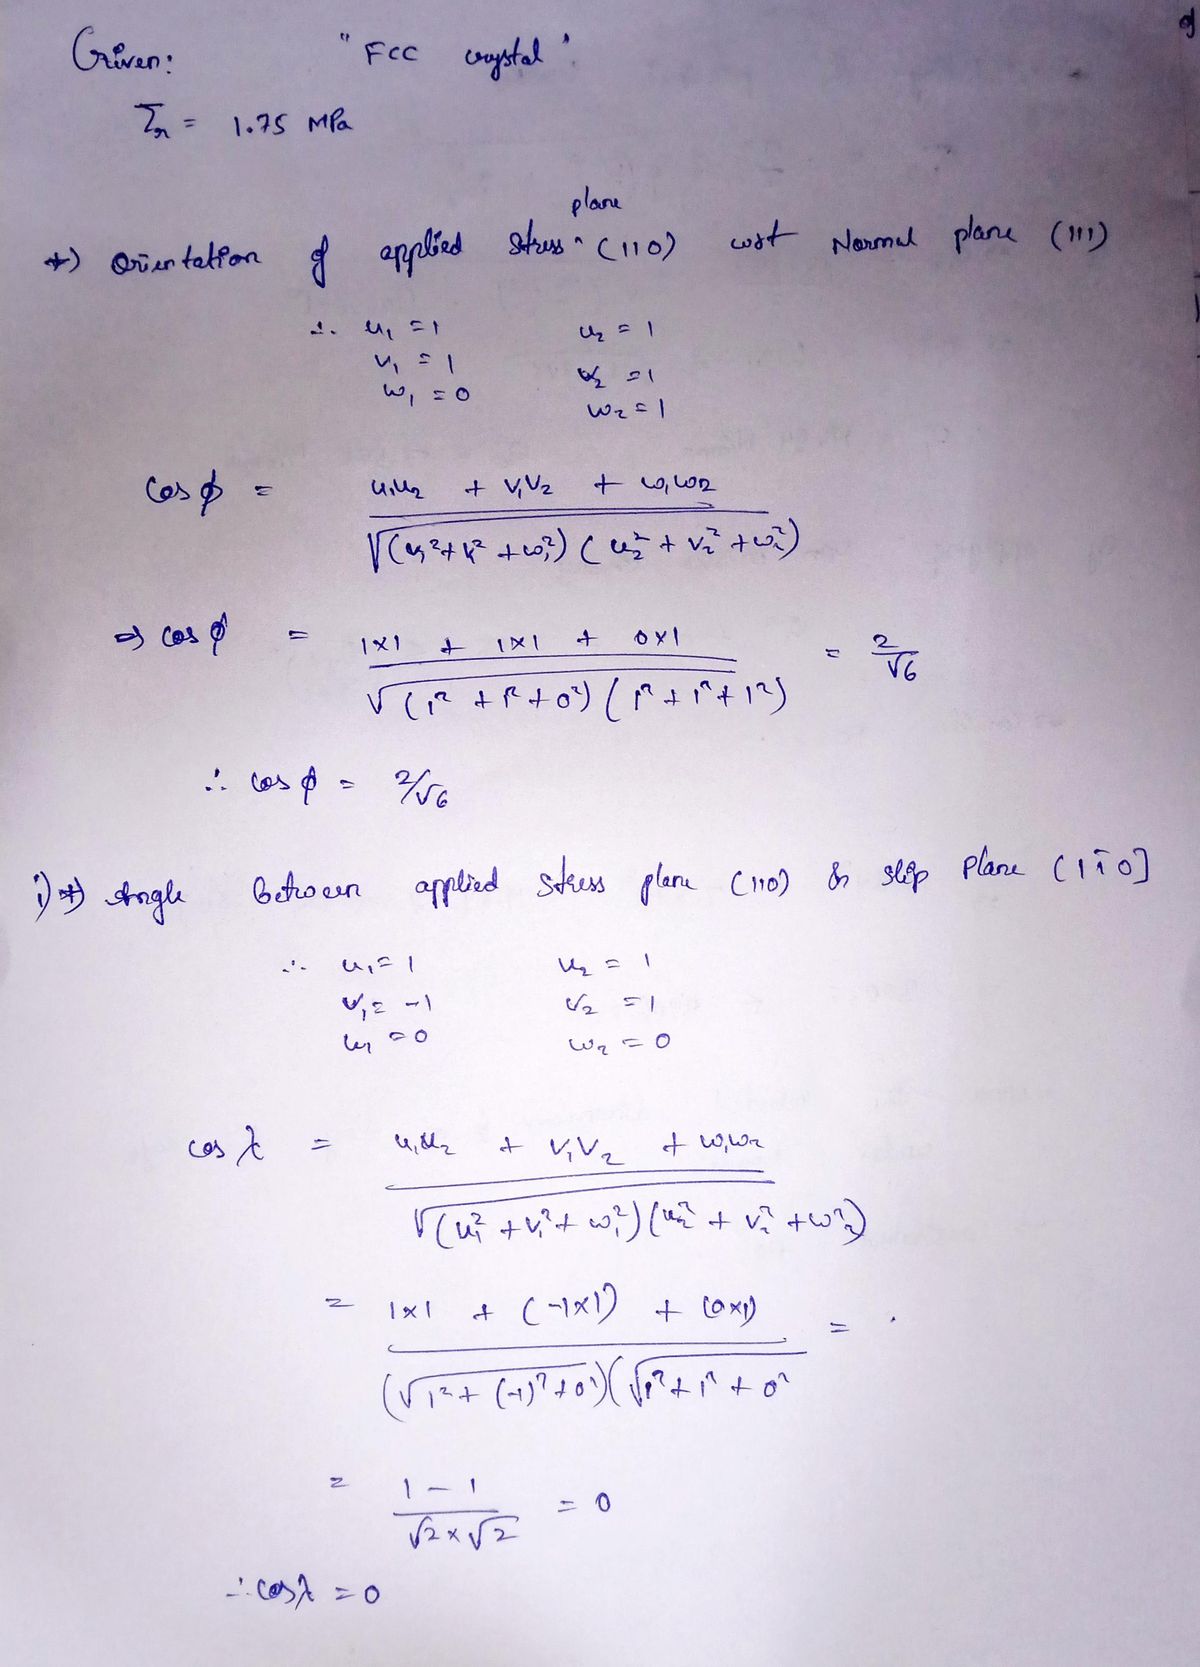 Given: "FCC crystal"
τr = 1.75 MPa
plane
*) Orientation of applied stress ^ (110) wrt Normal plane (111)
∴ u₁ = 1 u₂ = 1
v₁ = 1 v₂ = 1
w₁ = 0 w₂ = 1
cos φ = u₁u₂ + v₁v₂ + w₁w₂
√(u₁² + v₁² + w₁²) (u₂² + v₂² + w₂²)
⇒ cos φ = 1×1 + 1×1 + 0×1 = 2/√6
√(1² + 1² + 0²) (1² + 1² + 1²)
∴ cos φ = 2/√6
i) *) Angle between applied stress plane (110) & slip plane (11̄0]
∴ u₁ = 1 u₂ = 1
v₁ = -1 v₂ = 1
w₁ = 0 w₂ = 0
cos λ = u₁u₂ + v₁v₂ + w₁w₂
√(u₁² + v₁² + w₁²) (u₂² + v₂² + w₂²)
= 1×1 + (-1×1) + (0×1) =
(√1² + (-1)² + 0²)(√1² + 1² + 0²
= 1 - 1 = 0
√2 × √2
∴ cos λ = 0